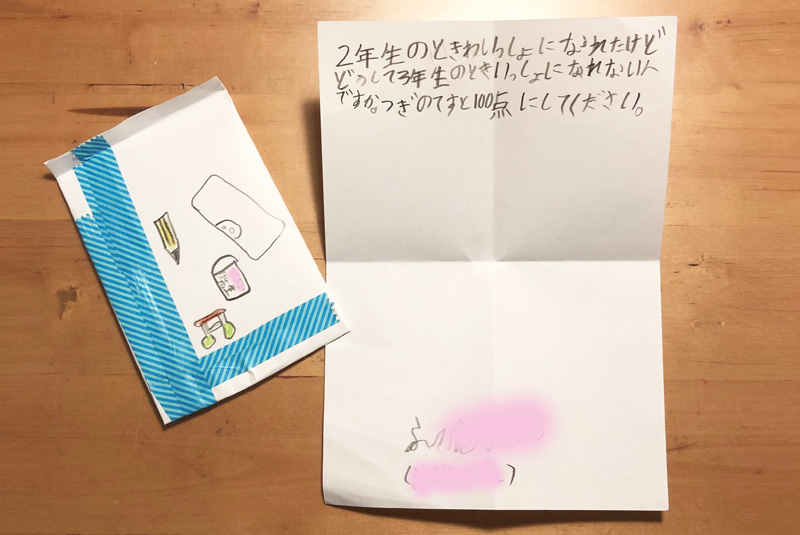 2年生のときわいっしょになれたけど
どうして3年生のときいっしょになれないん
ですか。つぎのてすと100点にしてください。